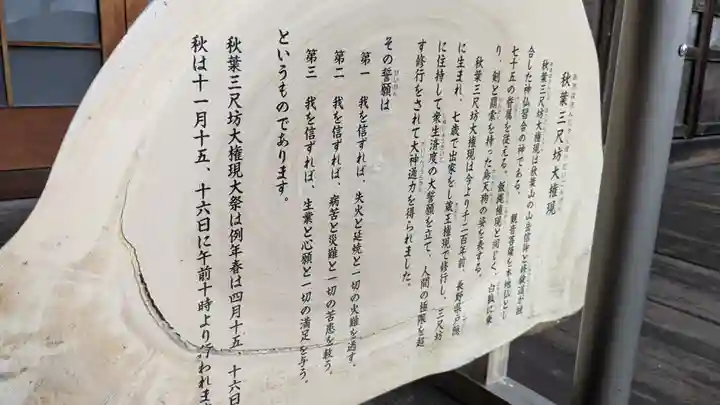 秋葉三尺坊大権現
秋葉三尺坊大権現は秋葉山の山岳信仰と修験道が融
合した神仏習合の神である。 観音菩薩を本地仏とし
七十五の眷属を従える。飯縄権現と同じく、白狐に乗
り、剣と羂索を持った烏天狗の姿を表する。
秋葉三尺坊大権現は今より千二百年前、長野県戸隠
に生まれ、七歳で出家をし蔵王権現で修行し、三尺坊
に住持して衆生済度の大誓願を立て、人間の極限を超
す修行をされて大神通力を得られました。
その誓願は
第一 我を信ずれば、失火と延焼と一切の火難を逃す。
第二 我を信ずれば、病苦と災難と一切の苦患を救う。
第三 我を信ずれば、生業と心願と一切の満足を与う。
というものであります。
秋葉三尺坊大権現大祭は例年春は四月十五、十六日
秋は十一月十五、十六日に午前十時より行われま